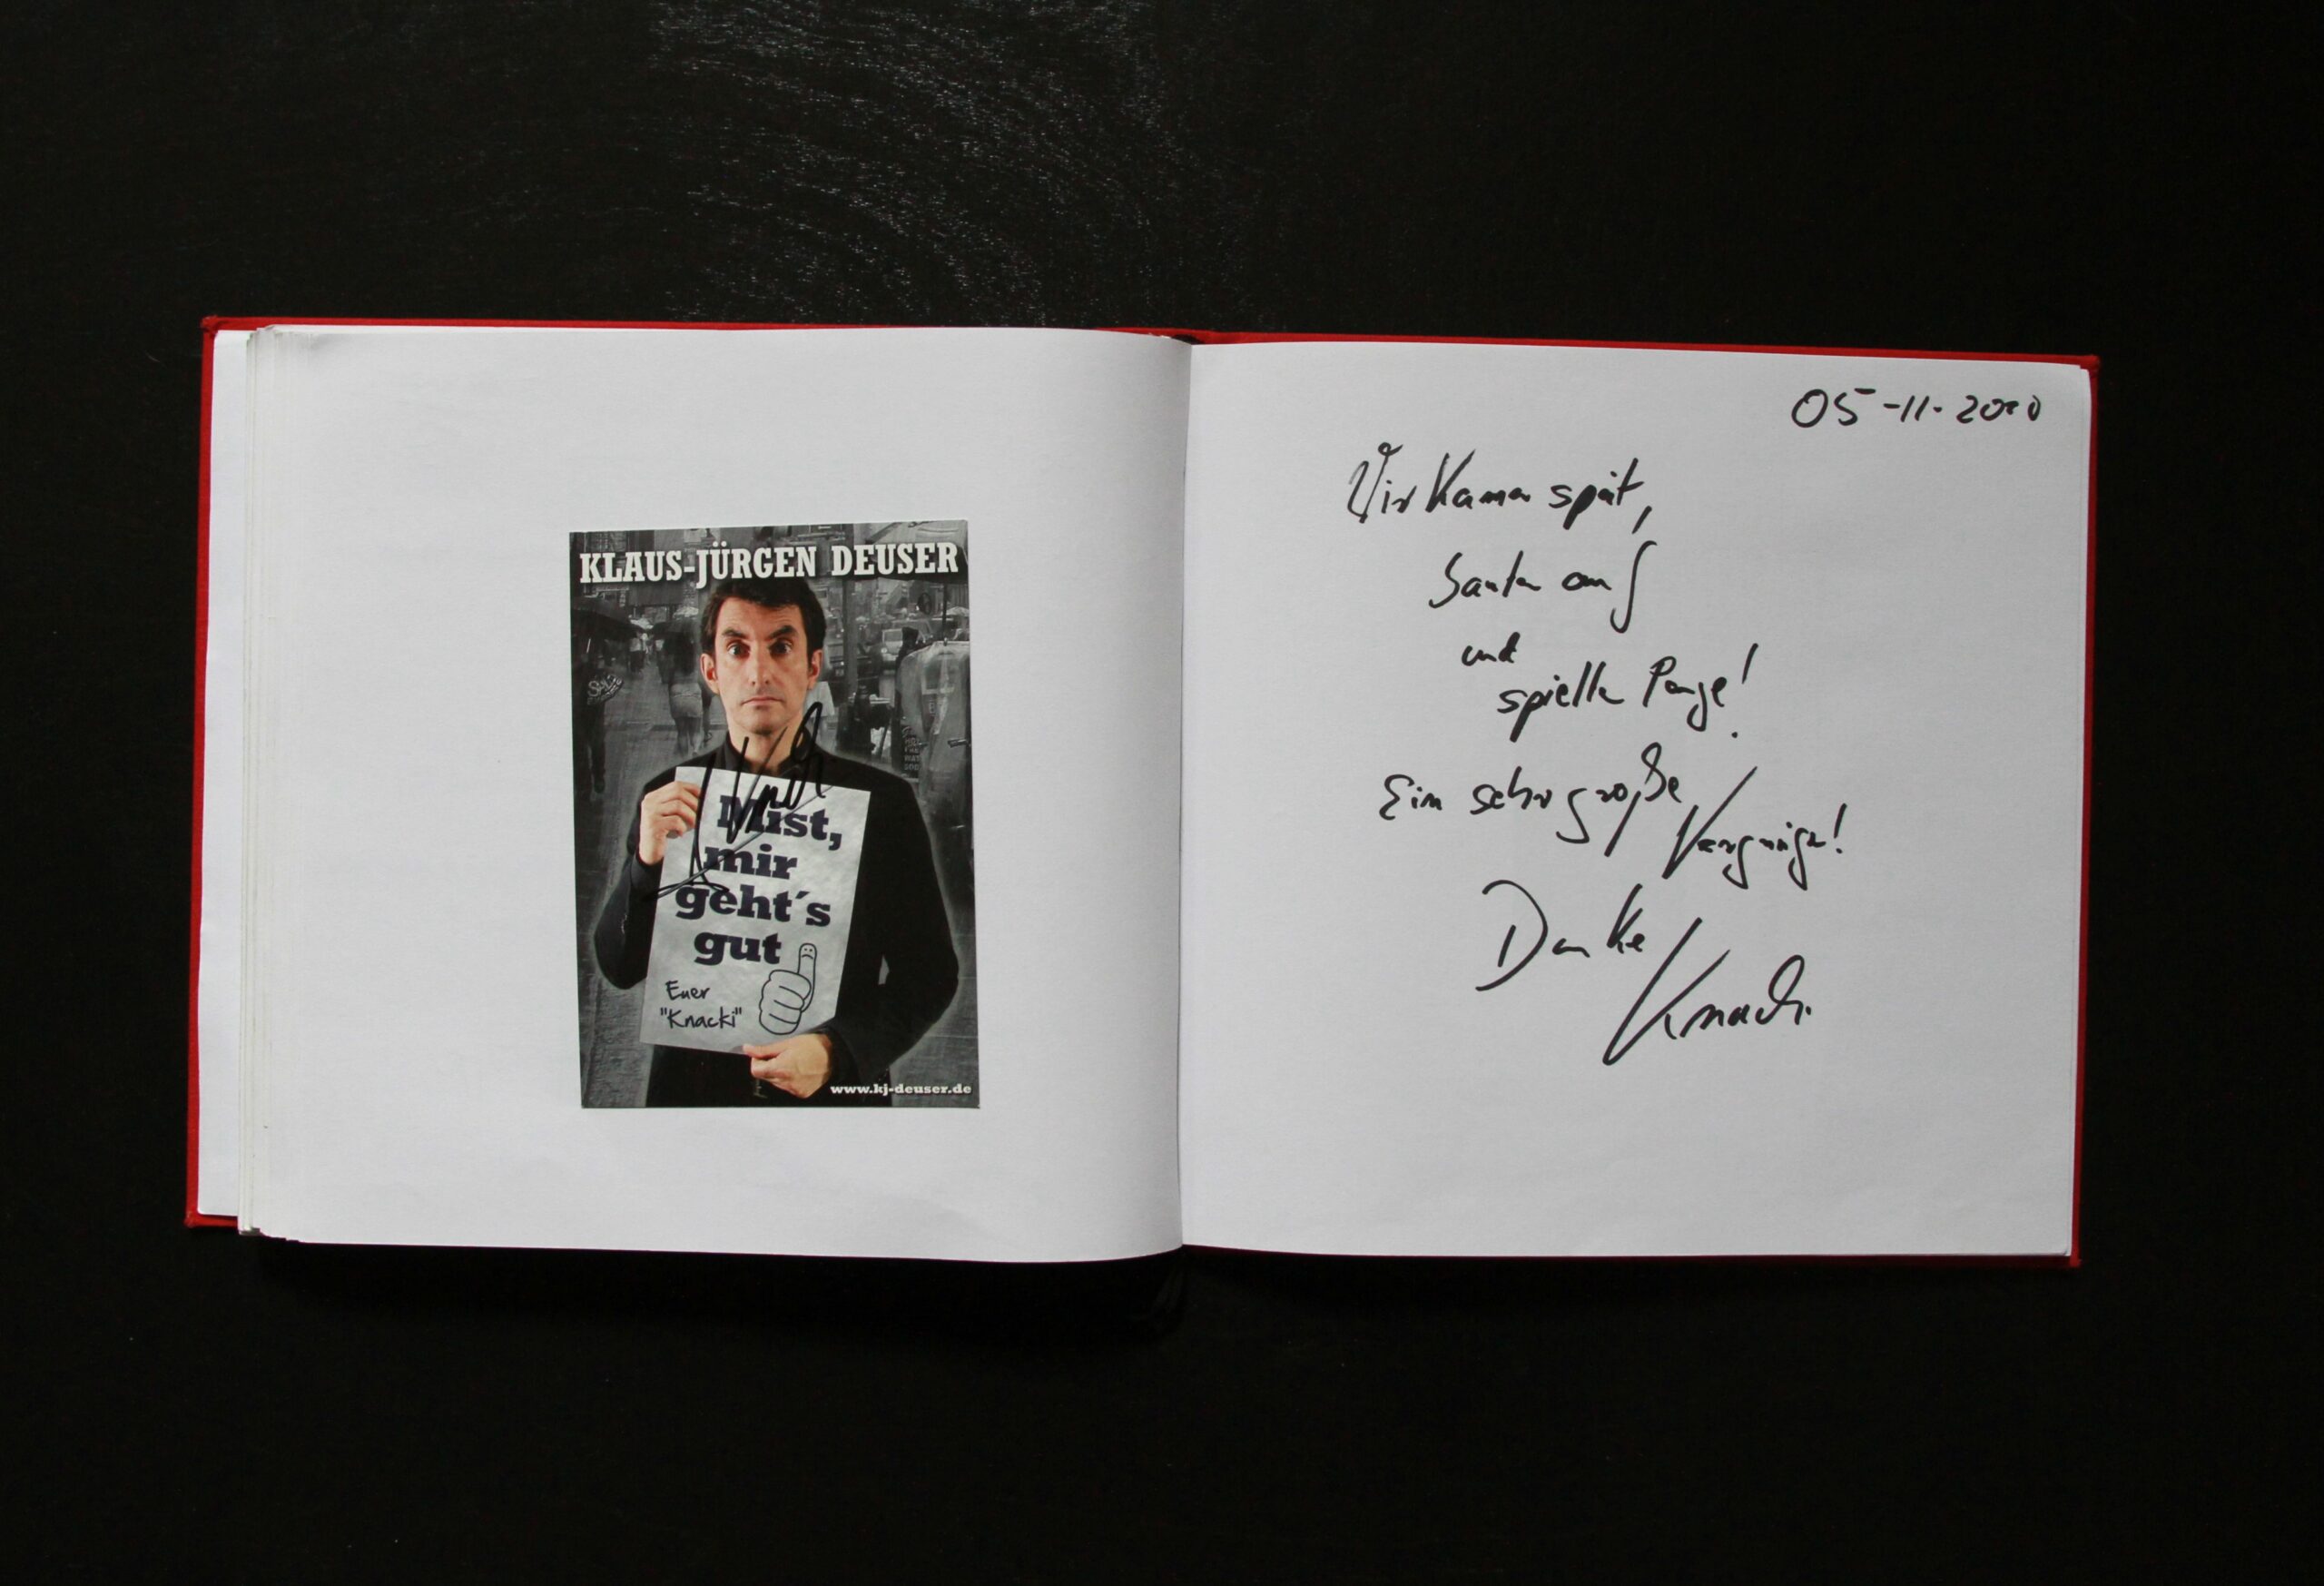 KLAUS-JÜRGEN DEUSER
Mist,
mir
geht´s
gut
Euer
"Knacki"
www.kj-deuser.de
05-11-2010
Wir kamen spät,
bauten auf
und
spielten
Ein sehr große
Vergnügen!
Danke
Knacki